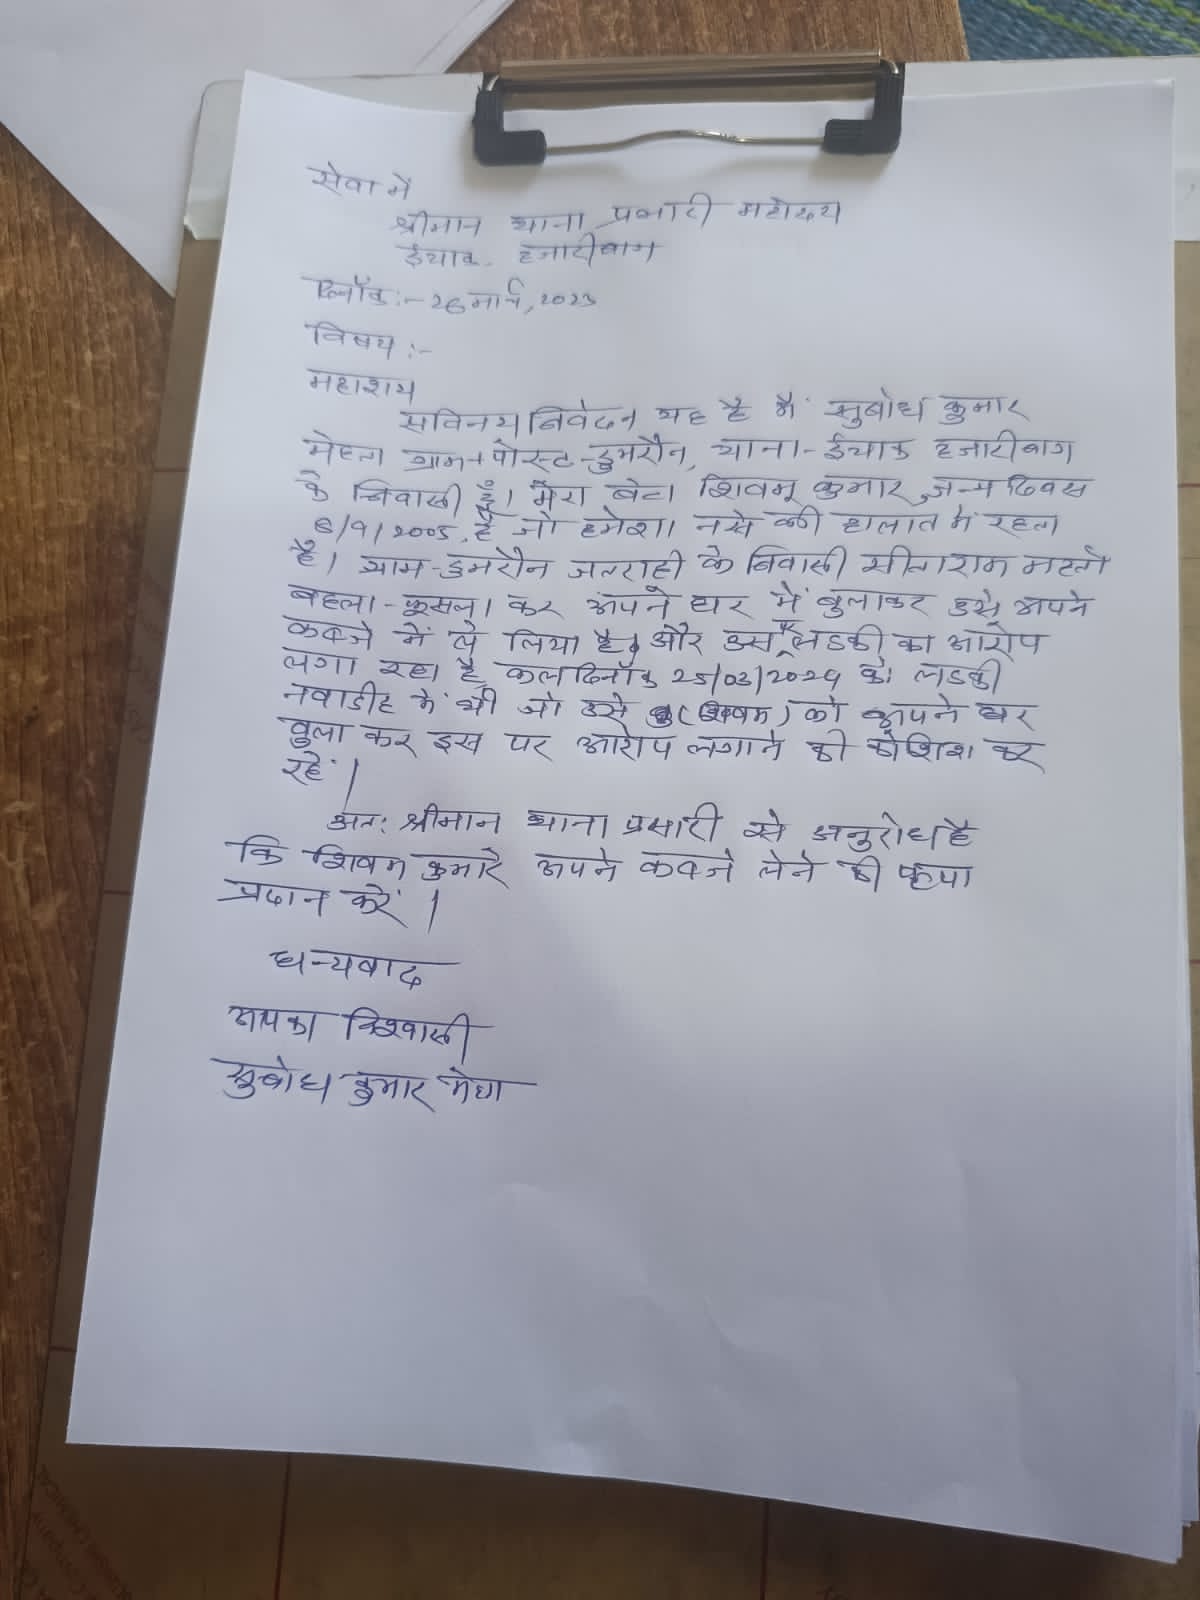 सेवा में
श्रीमान थाना प्रभारी महोदय
ईचाक हजारीबाग
दिनाँक :- 26 मार्च, 2023
विषय :-
महाशय
सविनय निवेदन यह है मैं सुबोध कुमार
मेहता ग्राम+पोस्ट-डुमरौन, थाना-ईचाक हजारीबाग
के निवासी हूँ। मेरा बेटा शिवम् कुमार जन्म दिवस
8/9/2005, है जो हमेशा नसे की हालात में रहता
है। ग्राम-डुमरौन जतराही के निवासी सीताराम महतो
बहला-फूसला कर अपने घर में बुलाकर उसे अपने
कबजे में ले लिया है, और उस लडकी का आरोप
लगा रहा है, कल दिनाँक 25/03/2024 को लडकी
नवाडीह में थी जो उसे (शिवम) को अपने घर
बुला कर इस पर आरोप लगाने की कोशिश कर
रहें।
अतः श्रीमान थाना प्रभारी से अनुरोध है
कि शिवम कुमार अपने कबजे लेने की कृपा
प्रदान करें।
धन्यवाद
आपका विश्वासी
सुबोध कुमार मेहता